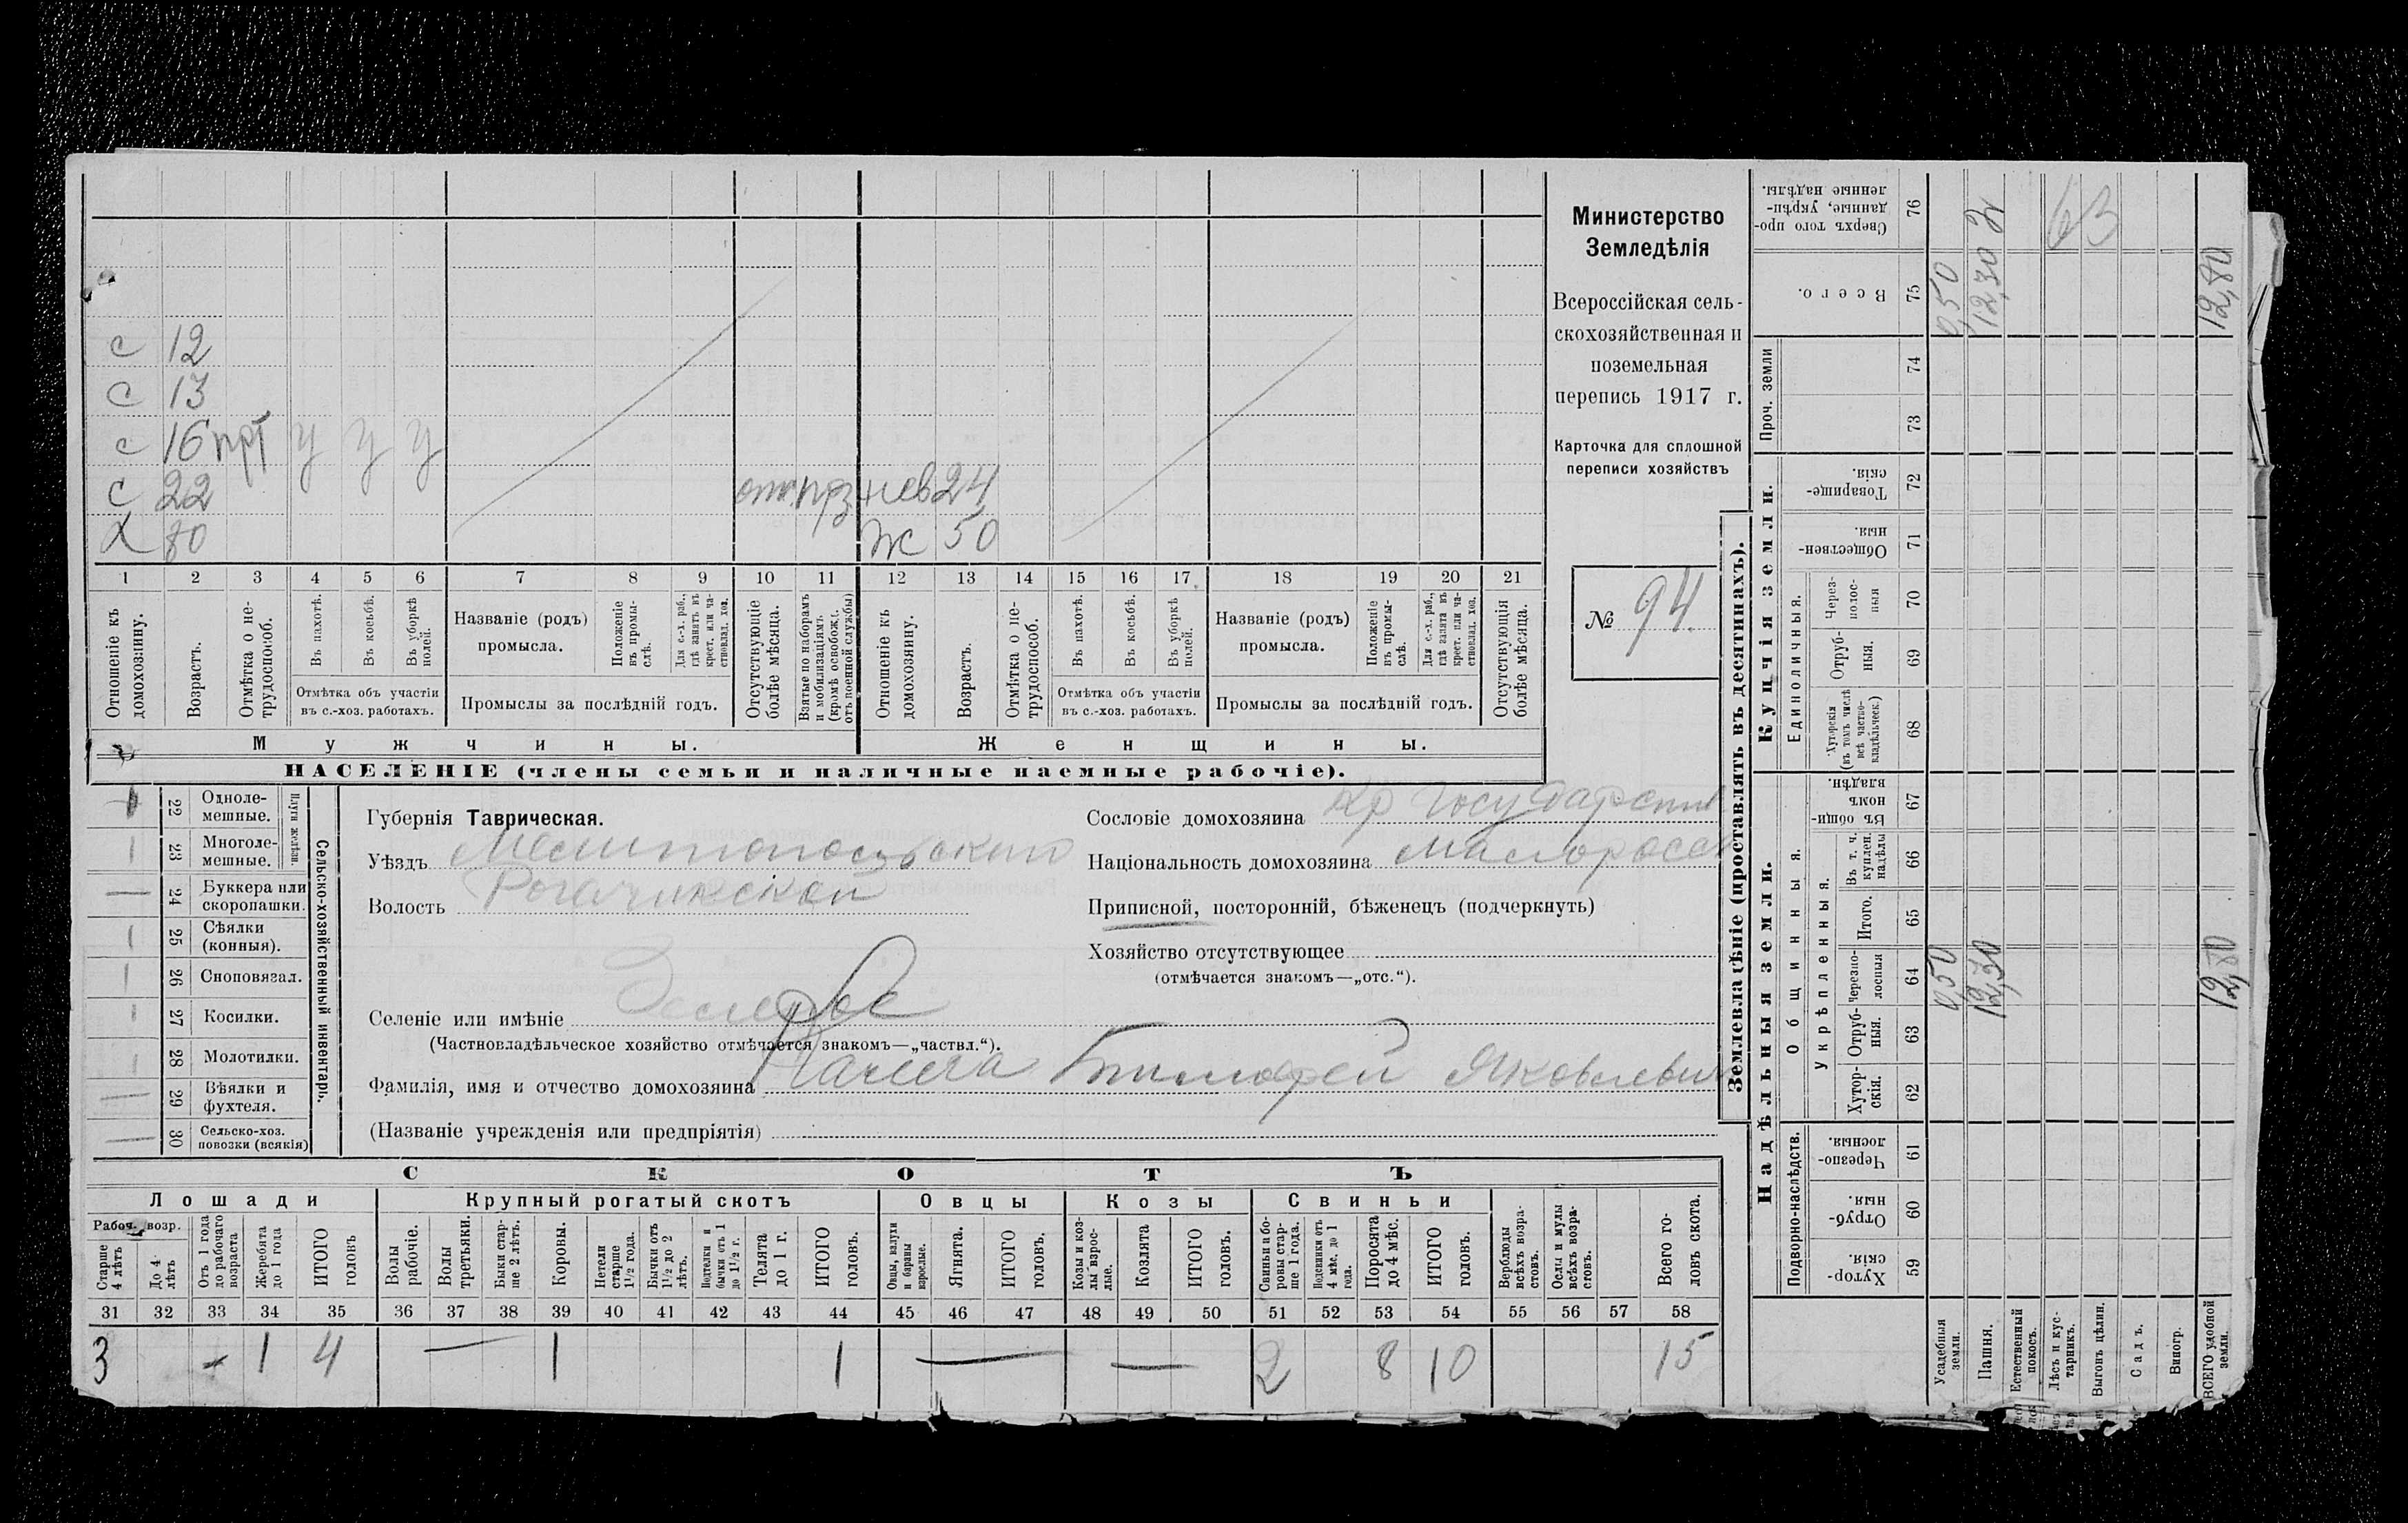 Министерство
Земледѣлія
Всероссійская сель-
скохозяйственная и
поземельная
перепись 1917 г.
Карточка для сплошной
переписи хозяйствъ
№ 94.
с 12
с 13
с 16 у у у
с 22 нев 24
х Ж 50
1 2 3 4 5 6 7 8 9 10 11 12 13 14 15 16 17 18 19 20 21
Отношеніе къ домохозяину.
Возрастъ.
Отмѣтка о не-трудоспособ.
Въ пахотѣ.
Въ косьбѣ.
Въ уборкѣ полей.
Отмѣтка объ участіи
въ с.-хоз. работахъ.
Названіе (родъ)
промысла.
Положеніе въ промы-слѣ.
Для с.-х. раб., гдѣ занятъ въ крест. или ча-стновлад. хоз.
Промыслы за послѣдній годъ.
Отсутствующіе болѣе мѣсяца.
Взятые по наборамъ и мобилизаціямъ (кромѣ освобожд. отъ военной службы)
Отношеніе къ домохозяину.
Возрастъ.
Отмѣтка о не-трудоспособ.
Въ пахотѣ.
Въ косьбѣ.
Въ уборкѣ полей.
Отмѣтка объ участіи
въ с.-хоз. работахъ.
Названіе (родъ)
промысла.
Положеніе въ промы-слѣ.
Для с.-х. раб., гдѣ занята въ крест. или ча-стновлад. хоз.
Промыслы за послѣдній годъ.
Отсутствующія болѣе мѣсяца.
Мужчины.
Женщины.
НАСЕЛЕНІЕ (члены семьи и наличные наемные рабочіе).
Сельско-хозяйственный инвентарь.
Плуги желѣзн.
22 Одноле-мешные.
1 23 Многоле-мешные.
— 24 Буккера или скоропашки.
1 25 Сѣялки (конныя).
1 26 Сноповязал.
1 27 Косилки.
1 28 Молотилки.
— 29 Вѣялки и фухтеля.
— 30 Сельско-хоз. повозки (всякія)
Губернія Таврическая.
Уѣздъ Мелитопольскій
Волость Рогачикской
Селеніе или имѣніе
(Частновладѣльческое хозяйство отмѣчается знакомъ—„частвл.“).
Фамилія, имя и отчество домохозяина Тимофей Яковлевич
(Названіе учрежденія или предпріятія)
Сословіе домохозяина Кр Государств
Національность домохозяина малоросс
Приписной, посторонній, бѣженецъ (подчеркнуть)
Хозяйство отсутствующее
(отмѣчается знакомъ—„отс.“).
СКОТЪ
Лошади
Крупный рогатый скотъ
Овцы
Козы
Свиньи
Рабоч. возр.
Старше 4 лѣтъ
До 4 лѣтъ
Отъ 1 года до рабочаго возраста
Жеребята до 1 года
ИТОГО головъ
Волы рабочіе.
Волы третьяки.
Быки стар-ше 2 лѣтъ.
Коровы.
Нетели старше 1½ года.
Бычки отъ 1½ до 2 лѣтъ.
Подтелки и бычки отъ 1 до 1½ г.
Телята до 1 г.
ИТОГО головъ.
Овцы, валухи и бараны взрослые.
Ягнята.
ИТОГО головъ.
Козы и коз-лы взрос-лые.
Козлята
ИТОГО головъ.
Свиньи и бо-ровы стар-ше 1 года.
Подсвинки отъ 4 мѣс. до 1 года.
Поросята до 4 мѣс.
ИТОГО головъ.
Верблюды всѣхъ возра-стовъ.
Ослы и мулы всѣхъ возра-стовъ.
Всего го-ловъ скота.
31 32 33 34 35 36 37 38 39 40 41 42 43 44 45 46 47 48 49 50 51 52 53 54 55 56 57 58
3 1 4 — 1 1 — — 2 8 10 15
Землевладѣніе (проставлять въ десятинахъ).
Надѣльныя земли.
Купчія земли.
Проч. земли
Подворно-наслѣдств.
Общинныя.
Укрѣпленныя.
Единоличныя.
59 Хутор-скія.
60 Отруб-ныя.
61 Черезпо-лосныя.
62 Хутор-скія.
63 Отруб-ныя.
64 Черезпо-лосныя
65 Итого.
66 Въ т. ч. куплен. надѣлы
67 Въ общи-номъ владѣн.
68 Хуторскія (въ томъ числѣ всѣ частно-владѣльческ.)
69 Отруб-ныя.
70 Через-полос-ныя
71 Обществен-ныя.
72 Товарище-скія.
73
74
75 Всего.
76 Сверхъ того про-данные, укрѣп-ленные надѣлы.
Усадебныя земли. 0,50 0,50
Пашня. 12,30 12,30
Естественный покосъ.
Лѣсъ и кус-тарникъ. 63
Выгонъ цѣлин.
Садъ.
Виногр.
ВСЕГО удобной земли. 12,80 12,80